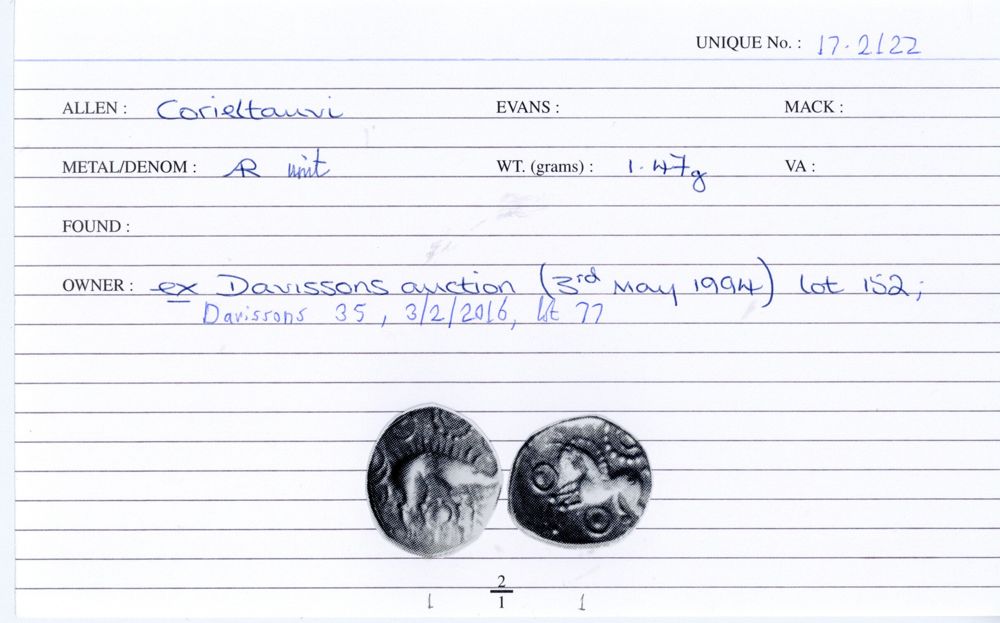 UNIQUE No. : 17.2122
ALLEN : Corieltauvi EVANS : MACK :
METAL/DENOM : AR unit WT. (grams) : 1.47g VA :
FOUND :
OWNER : ex Davissons auction (3rd May 1994) lot 152;
Davissons 35, 3/2/2016, lot 77
2
1 1 1